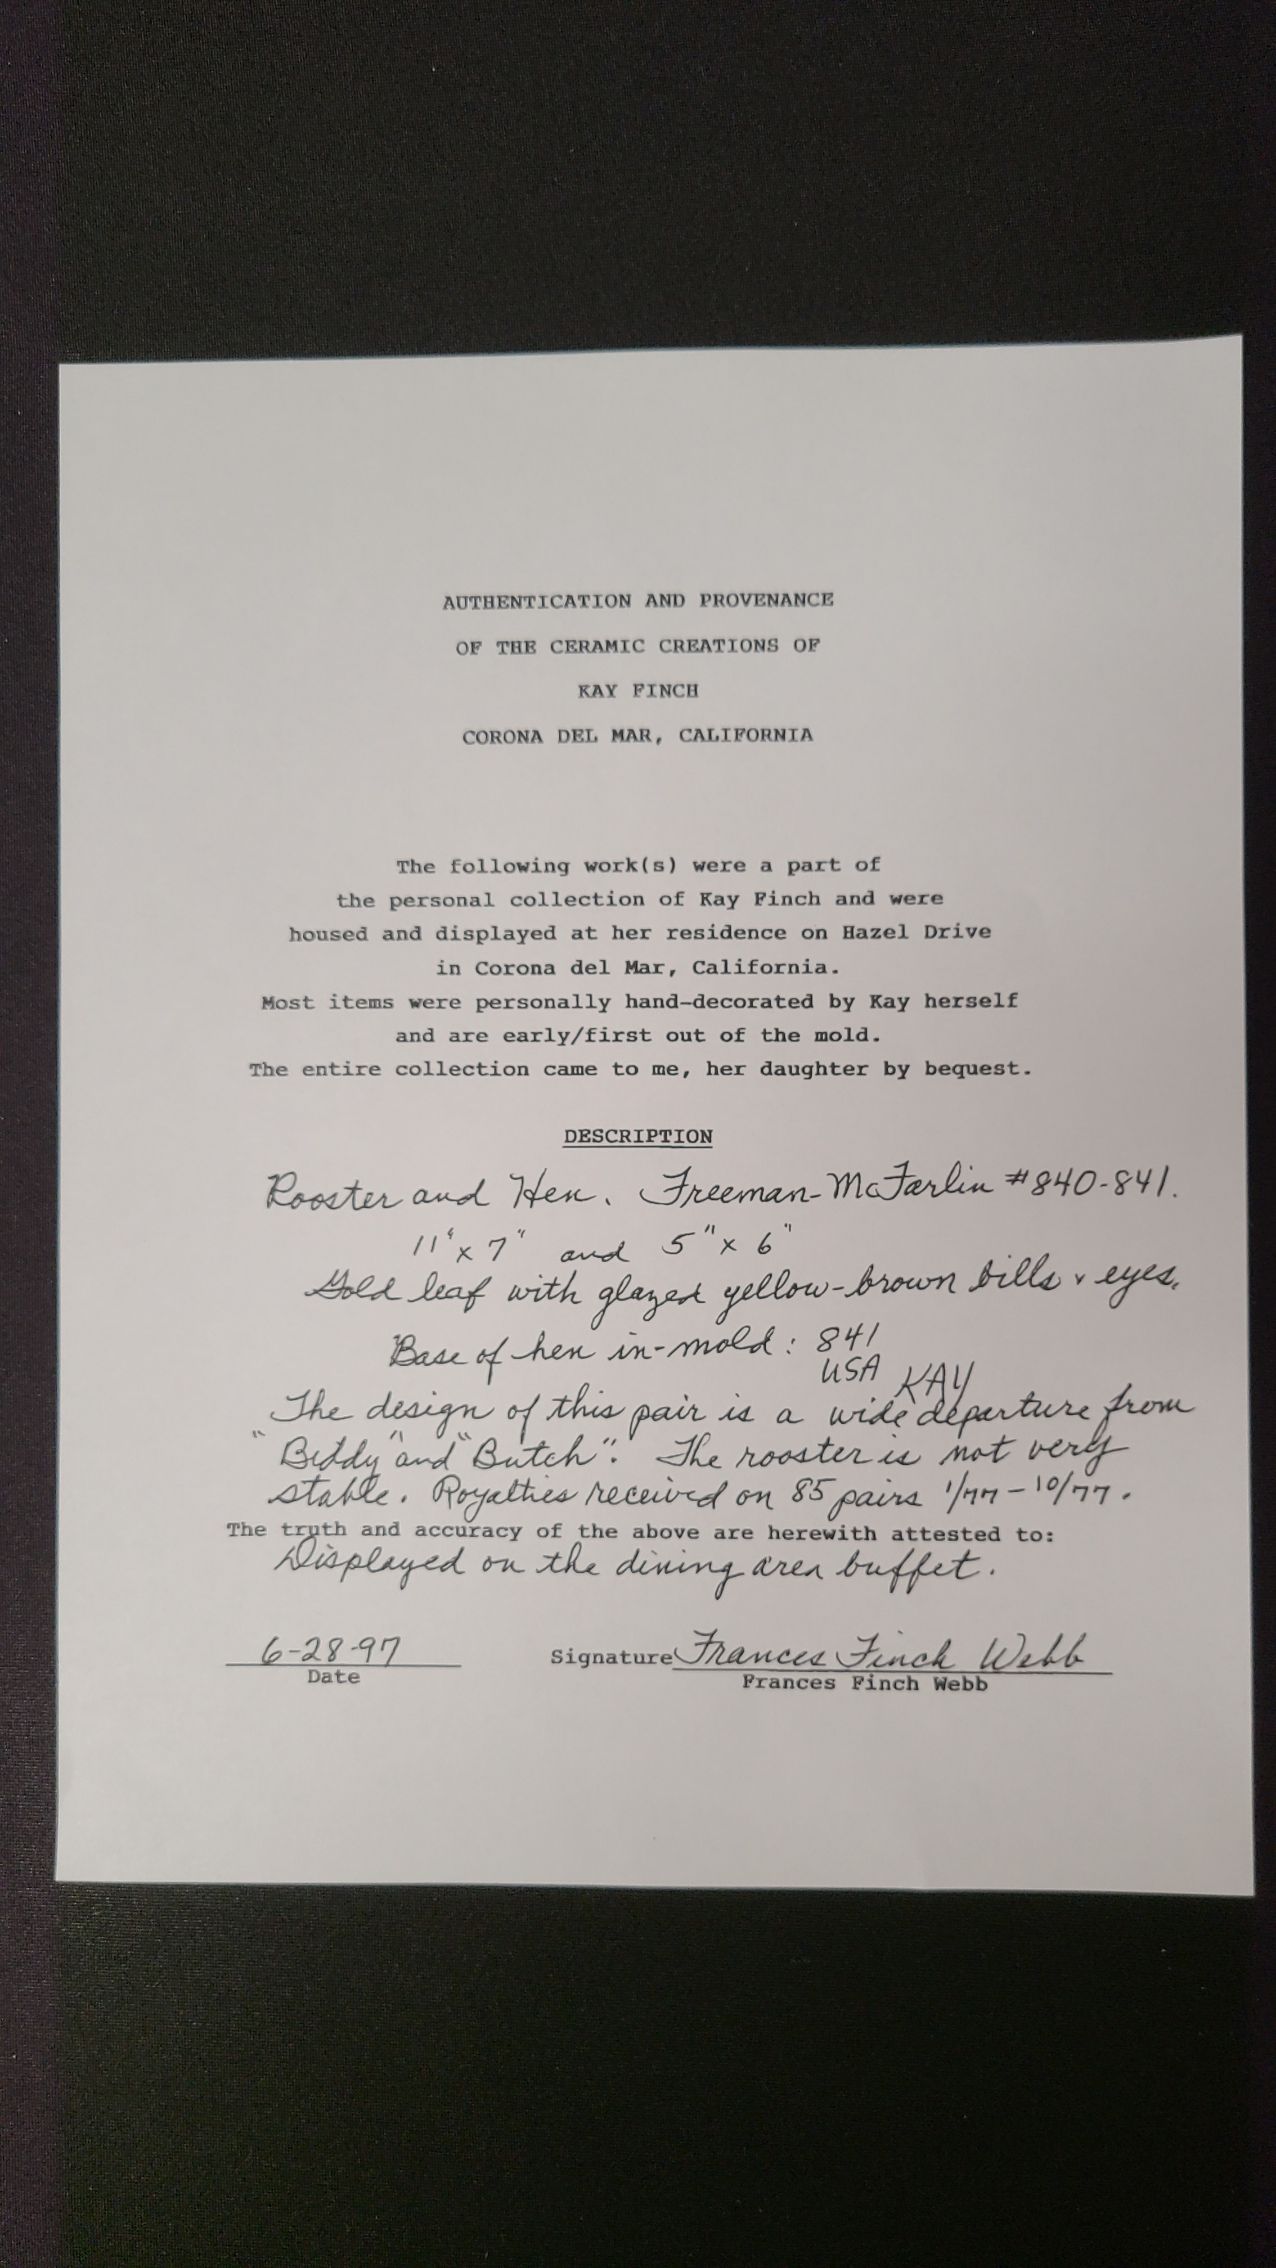 AUTHENTICATION AND PROVENANCE
OF THE CERAMIC CREATIONS OF
KAY FINCH
CORONA DEL MAR, CALIFORNIA
The following work(s) were a part of
the personal collection of Kay Finch and were
housed and displayed at her residence on Hazel Drive
in Corona del Mar, California.
Most items were personally hand-decorated by Kay herself
and are early/first out of the mold.
The entire collection came to me, her daughter by bequest.
DESCRIPTION
Rooster and Hen. Freeman-McFarlin #840-841.
11" x 7" and 5" x 6"
Gold leaf with glazed yellow-brown bills & eyes.
Base of hen in-mold: 841
USA KAY
The design of this pair is a wide departure from
"Biddy" and "Butch". The rooster is not very
stable. Royalties received on 85 pairs 1/77-10/77.
The truth and accuracy of the above are herewith attested to:
Displayed on the dining area buffet.
6-28-97 Signature Frances Finch Webb
Date Frances Finch Webb